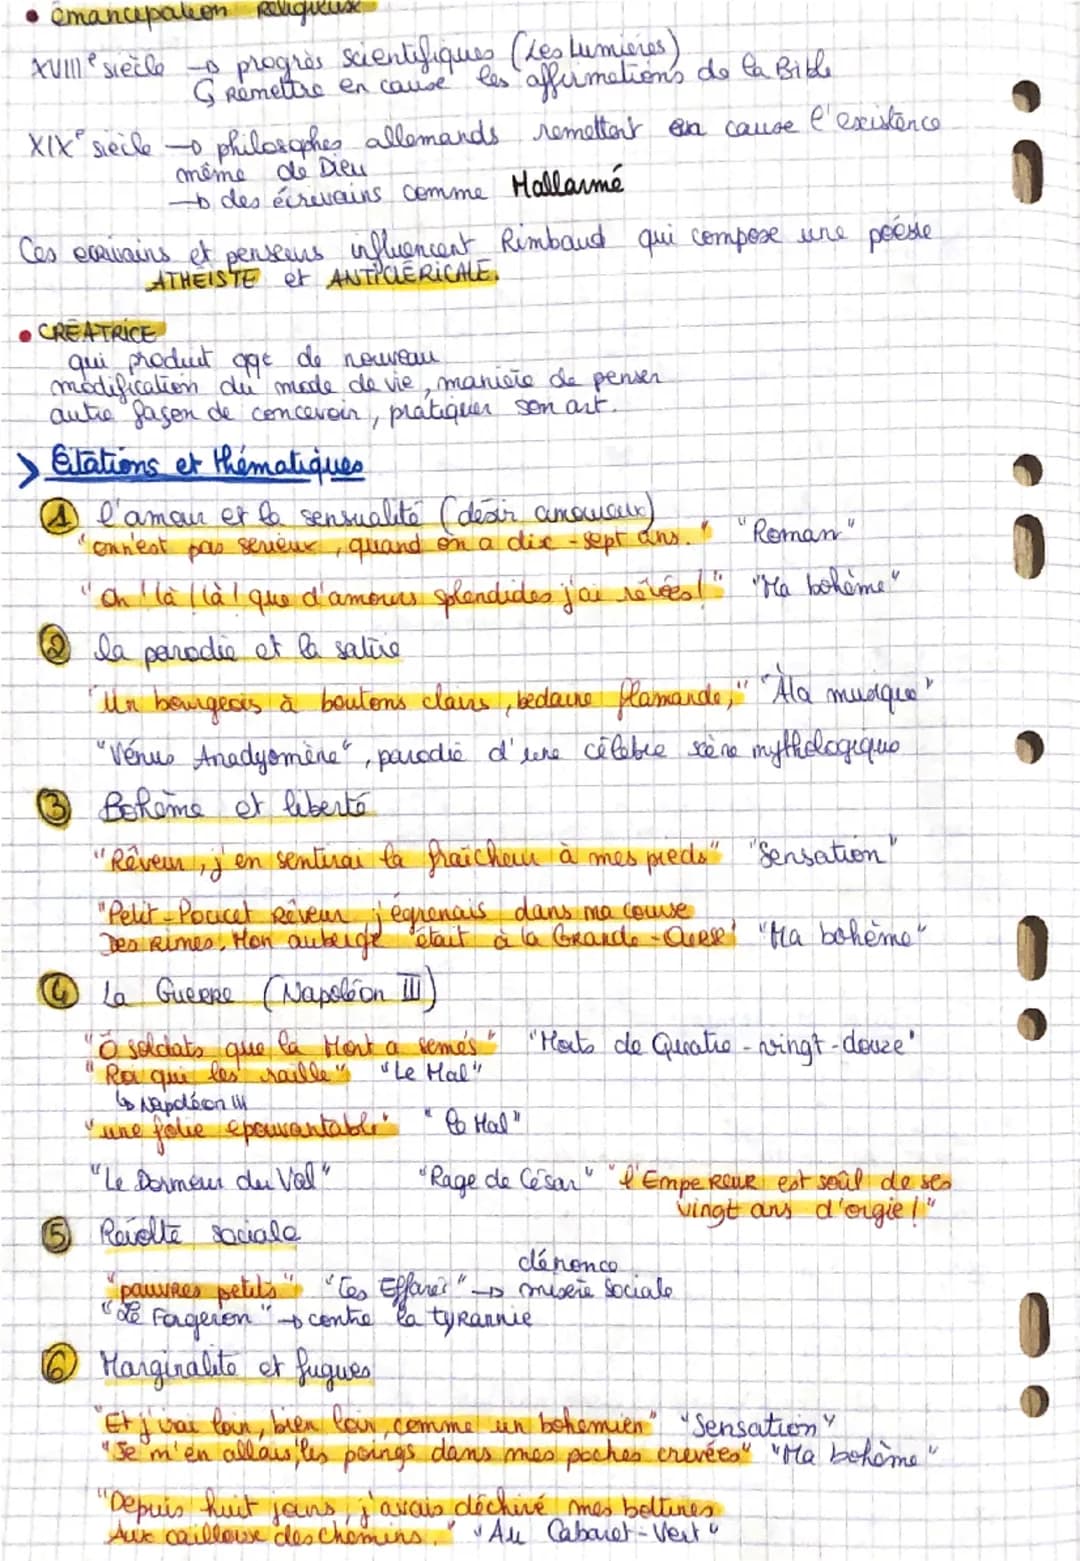 • émancipation Religieuse
XVIIIe siècle → progrès scientifiques (Les Lumières)
↳ Remettre en cause les affirmations de la Bible
XIXe siècle → philosophes allemands remettent en cause l'existence
même de Dieu
→ des écrivains comme Mallarmé
Ces écrivains et penseurs influencent Rimbaud qui compose une poésie
ATHÉISTE et ANTICLÉRICALE.
• CRÉATRICE
qui produit qqc de nouveau
modification du mode de vie, manière de penser
autre façon de concevoir, pratiquer son art.
> Citations et thématiques
1 l'amour et la sensualité (désir amoureux)
"on n'est pas serieux, quand on a dix-sept ans." "Roman"
"Oh ! là ! là ! que d'amours splendides j'ai rêvées !" "Ma bohème"
2 la parodie et la satire
"Un bourgeois à boutons clairs, bedaine flamande," "À la musique"
"Vénus Anadyomène", parodie d'une célèbre scène mythologique
3 Bohème et liberté
"Rêveur, j'en sentirai la fraîcheur à mes pieds" "Sensation"
"Petit-Poucet Rêveur j'égrenais dans ma course
Des Rimes, Mon auberge était à la Grande-Ourse" "Ma bohème"
4 La Guerre (Napoléon III)
"Ô soldats que la Mort a semés" "Morts de Quatre-vingt-douze"
"Roi qui les raille" "Le Mal"
↳ Napoléon III
"une folie épouvantable" "Le Mal"
"Le Dormeur du Val" "Rage de César" "l'Empereur est soûl de ses
vingt ans d'orgie !"
5 Révolte sociale
dénonce
"pauvres petits" "Les Effarés" → misère Sociale
"Le Forgeron" → contre la tyrannie
6 Marginalité et fugues
"Et j'irai loin, bien loin, comme un bohémien" "Sensation"
"Je m'en allais, les poings dans mes poches crevées" "Ma bohème"
"Depuis huit jours, j'avais déchiré mes bottines
Aux cailloux des chemins." "Au Cabaret-Vert"